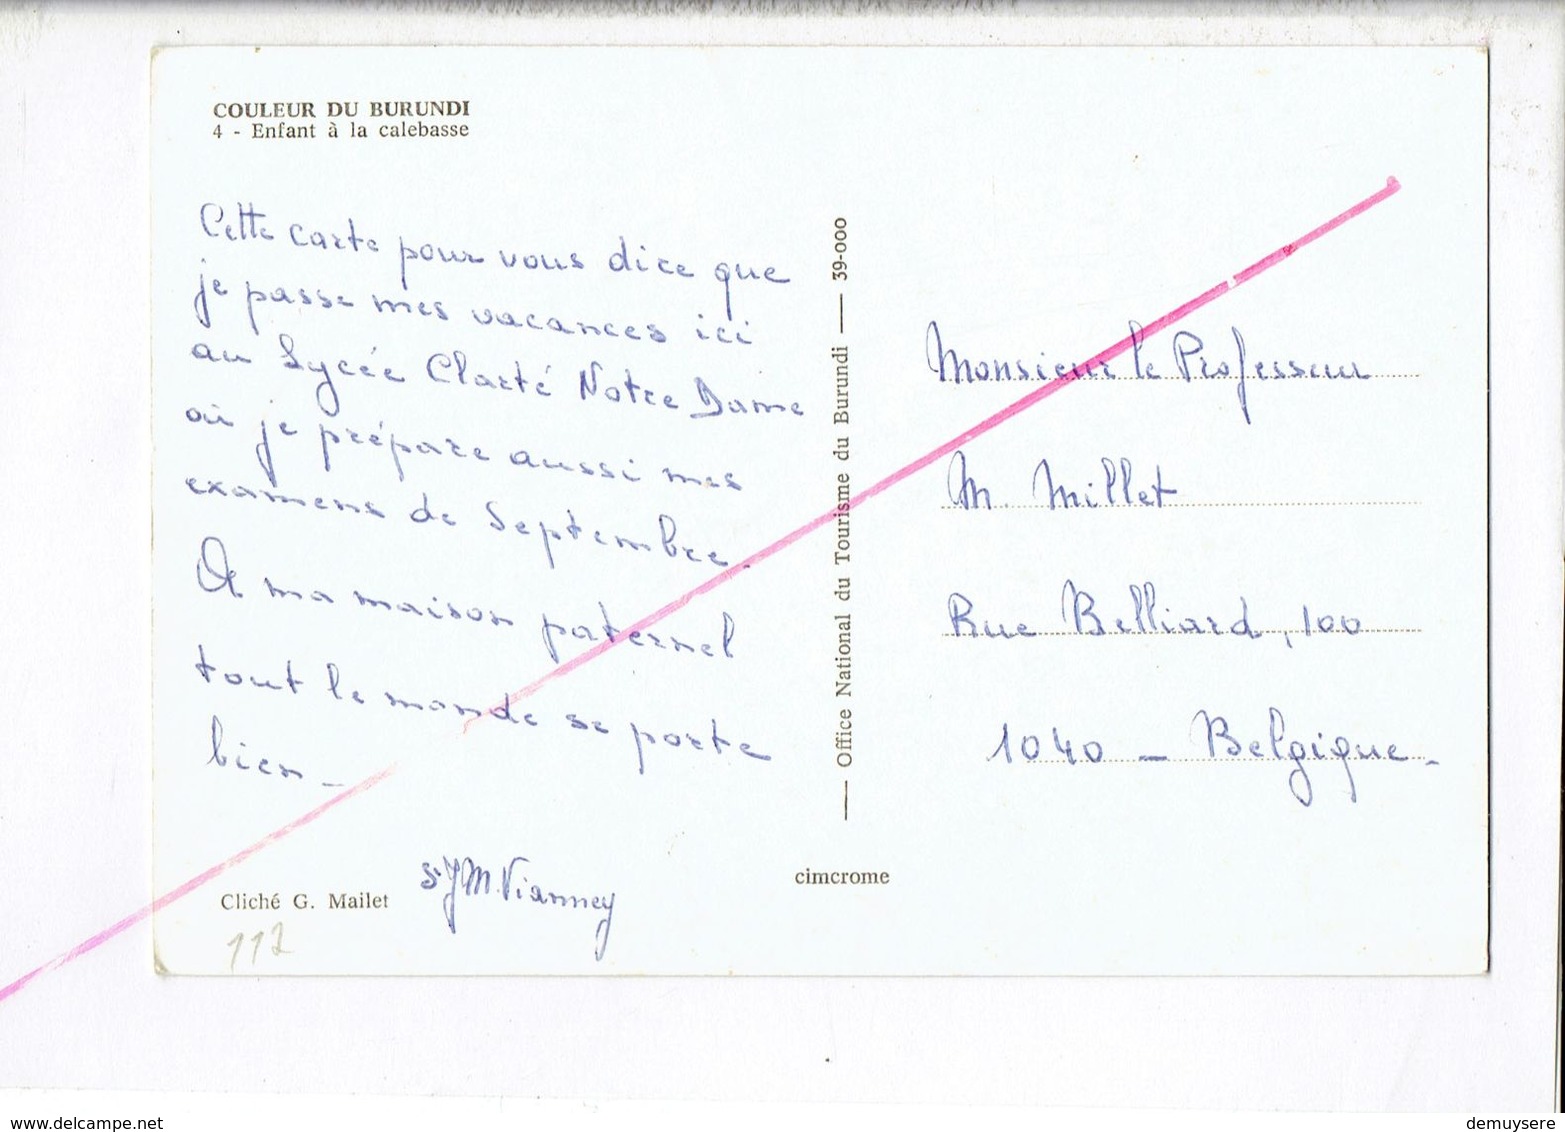 COULEUR DU BURUNDI
4 - Enfant à la calebasse
Cette carte pour vous dire que
je passe mes vacances ici
au Lycée Clarté Notre Dame
où je prépare aussi mes
examens de Septembre.
De ma maison paternel
tout le monde se porte
bien _
Sr JM. Vianney
Cliché G. Mailet
117
Office National du Tourisme du Burundi — 39-000
cimcrome
Monsieur le Professeur
M. Millet
Rue Belliard, 100
1040 _ Belgique.
www.delcampe.net
demuysere